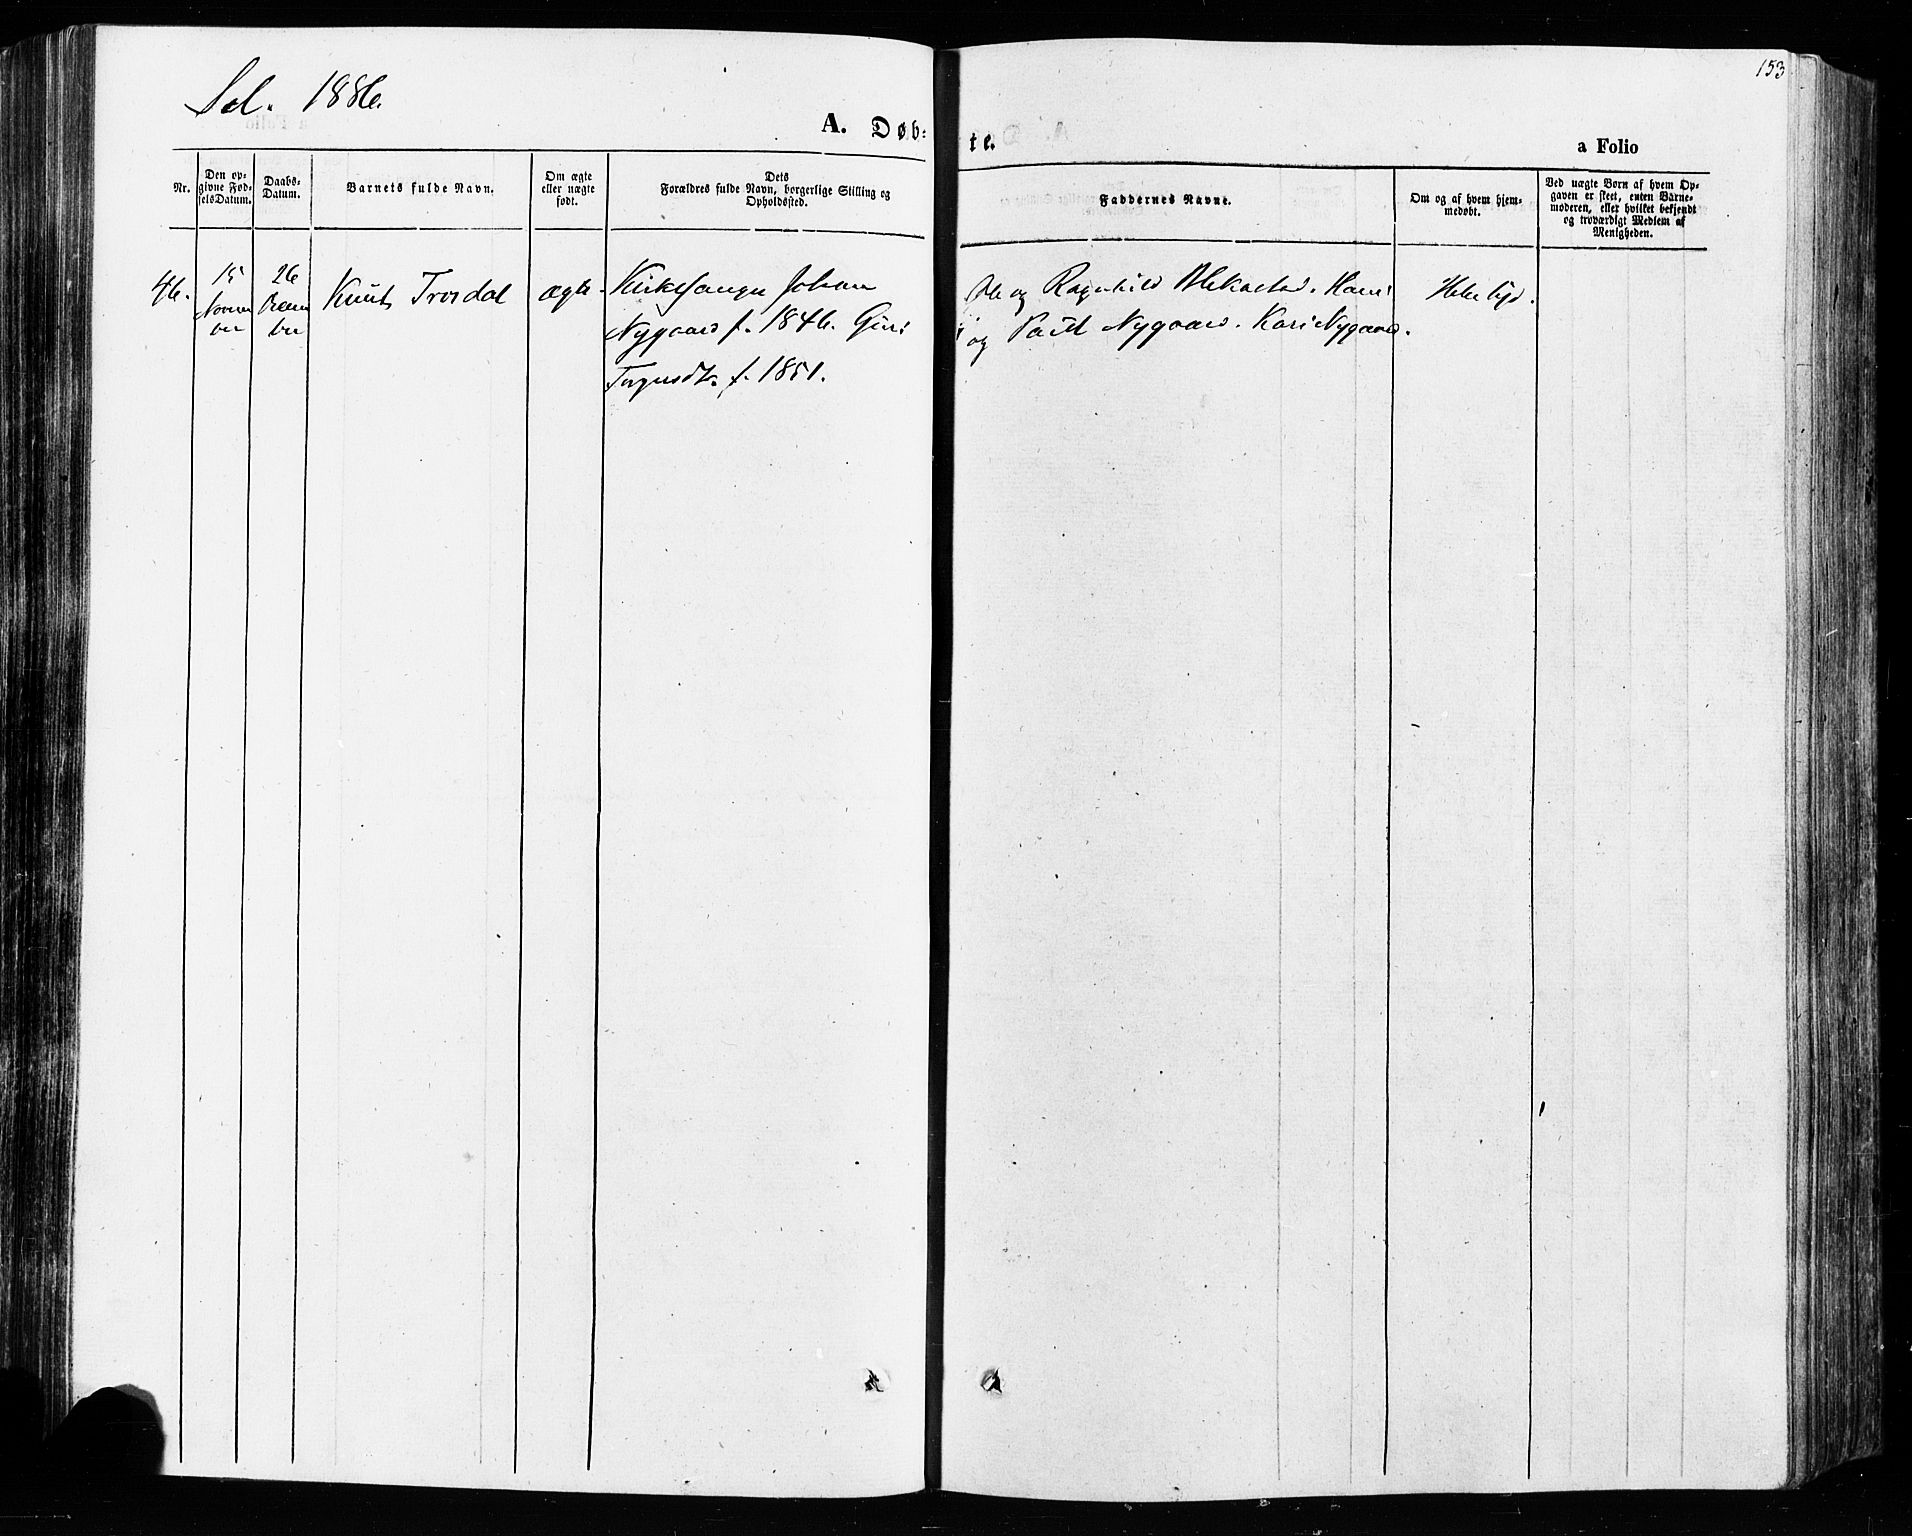 153
Sel. 1886.
A. Døb-
te.
a Folio
Nr.
Den op-
givne Fød-
selsDatum.
Daabs-
Datum.
Barnets fulde Navn.
Om ægte
eller uægte
født.
Dets
Forældres fulde Navn, borgerlige Stilling og
Opholdssted.
Faddernes Navne.
Om og af hvem hjem-
medøbt.
Ved uægte Børn af hvem Op-
gaven er skeet, enten Barne-
moderen, eller hvilket bekjendt
og troværdigt Medlem af
Menigheden.
46.
15
Novem
ber
26
Decem
ber
Knut Trosdal
ægte.
Kirkesanger Johan
Nygaard f. 1846. Guri
f. 1851.
Ole og Ragnhild
og Paul Nygaard. Kari Nygaard.